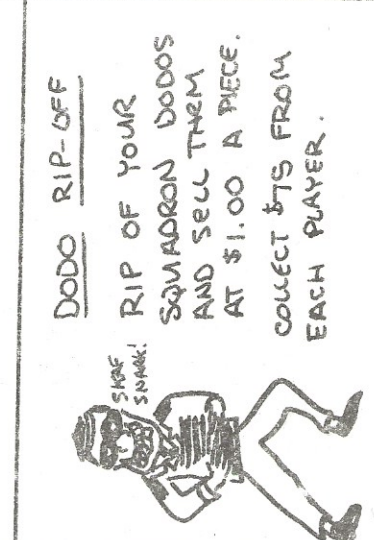 DODO RIP-OFF
RIP OF YOUR
SQUADRON DODOS
AND SELL THEM
AT $1.00 A PIECE.
COLLECT $75 FROM
EACH PLAYER.
SNARK!